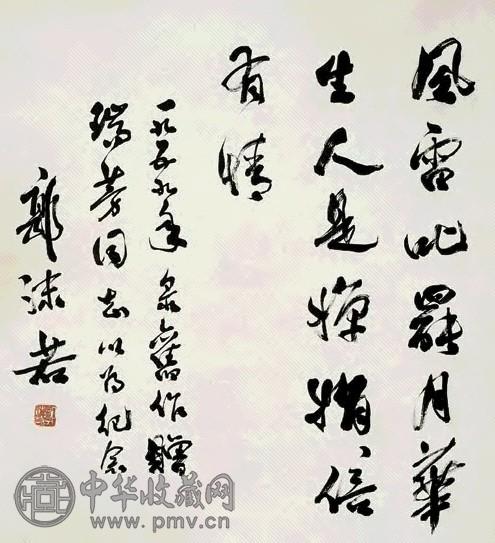 風雷叱罷月華
生人是嬋娟倍
有情
一九五九年录舊作贈
瑞芳同志以为紀念
郭沫若
中华收藏网
www.pmv.cn